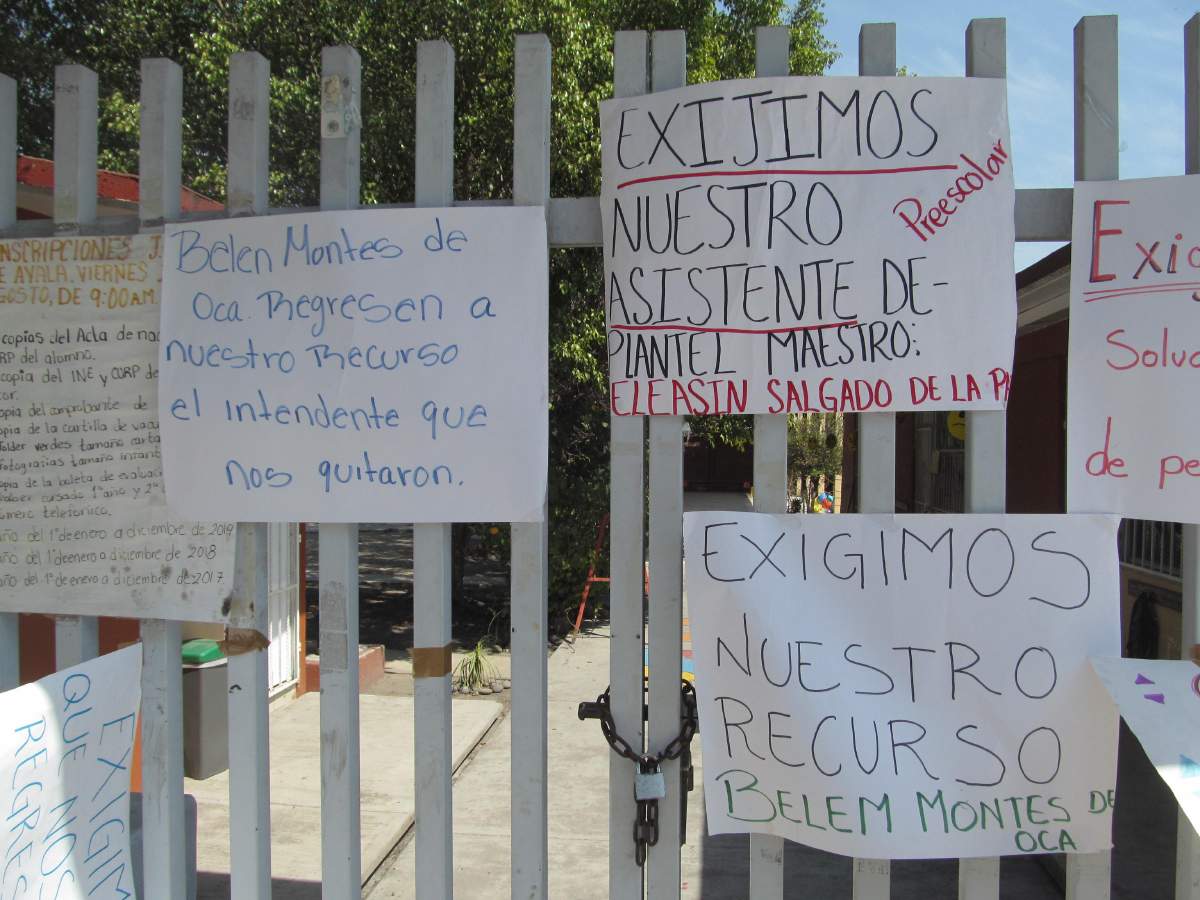 NSCRIPCIONES J
E AYALA. VIERNES
GOSTO, DE 9:00AM
copias del Acta de nac
RP del alumno.
copia del INE y CURP de
tor.
opia del comprobante de
pia de la cartilla de vacu
folder verdes tamaño carta
fotografías tamaño infant
pia de la boleta de evaluac
cursado 1° año y 2°
úmero telefónico.
año del 1° de enero a diciembre de 2019
año del 1° de enero a diciembre de 2018
año del 1° de enero a diciembre de 2017
Belen Montes de
Oca. Regresen a
nuestro Recurso
el intendente que
nos quitaron.
EXIJIMOS
Preescolar
NUESTRO
ASISTENTE DE-
PLANTEL MAESTRO:
ELEASIN SALGADO DE LA P
Exig
Soluc
de pe
EXIGIMOS
NUESTRO
RECURSO
BELEM MONTES DE
OCA
EXIGIM
QUE NOS
REGRES